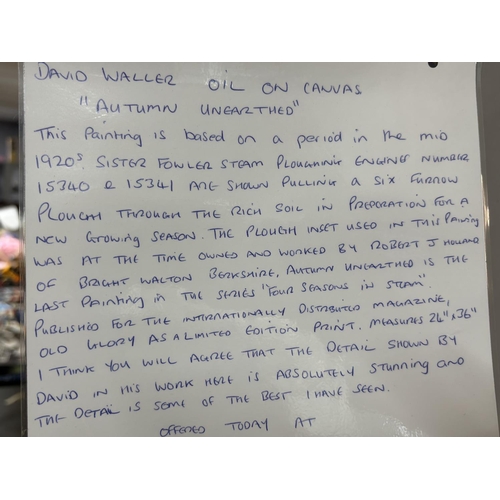 DAVID WALLER OIL ON CANVAS
"AUTUMN UNEARTHED"
This Painting is based on a period in the mid
1920s. SISTER FOWLER STEAM PLOUGHING ENGINES NUMBER
15340 & 15341 ARE SHOWN PULLING A SIX FURROW
PLOUGH THROUGH THE RICH SOIL IN PREPERATION FOR A
NEW GROWING SEASON. THE PLOUGH INSET USED IN THIS PAINTING
WAS AT THE TIME OWNED AND WORKED BY ROBERT J HOLLAND
OF BRIGHT WALTON BERKSHIRE, AUTUMN UNEARTHED IS THE
LAST PAINTING IN THE SERIES "FOUR SEASONS IN STEAM".
PUBLISHED FOR THE INTERNATIONALLY DISTRIBUTED MAGAZINE,
OLD GLORY AS A LIMITED EDITION PRINT. MEASURES 24" x 36"
I THINK YOU WILL AGREE THAT THE DETAIL SHOWN BY
DAVID IN HIS WORK HERE IS ABSOLUTELY STUNNING AND
THE DETAIL IS SOME OF THE BEST I HAVE SEEN.
OFFERED TODAY AT